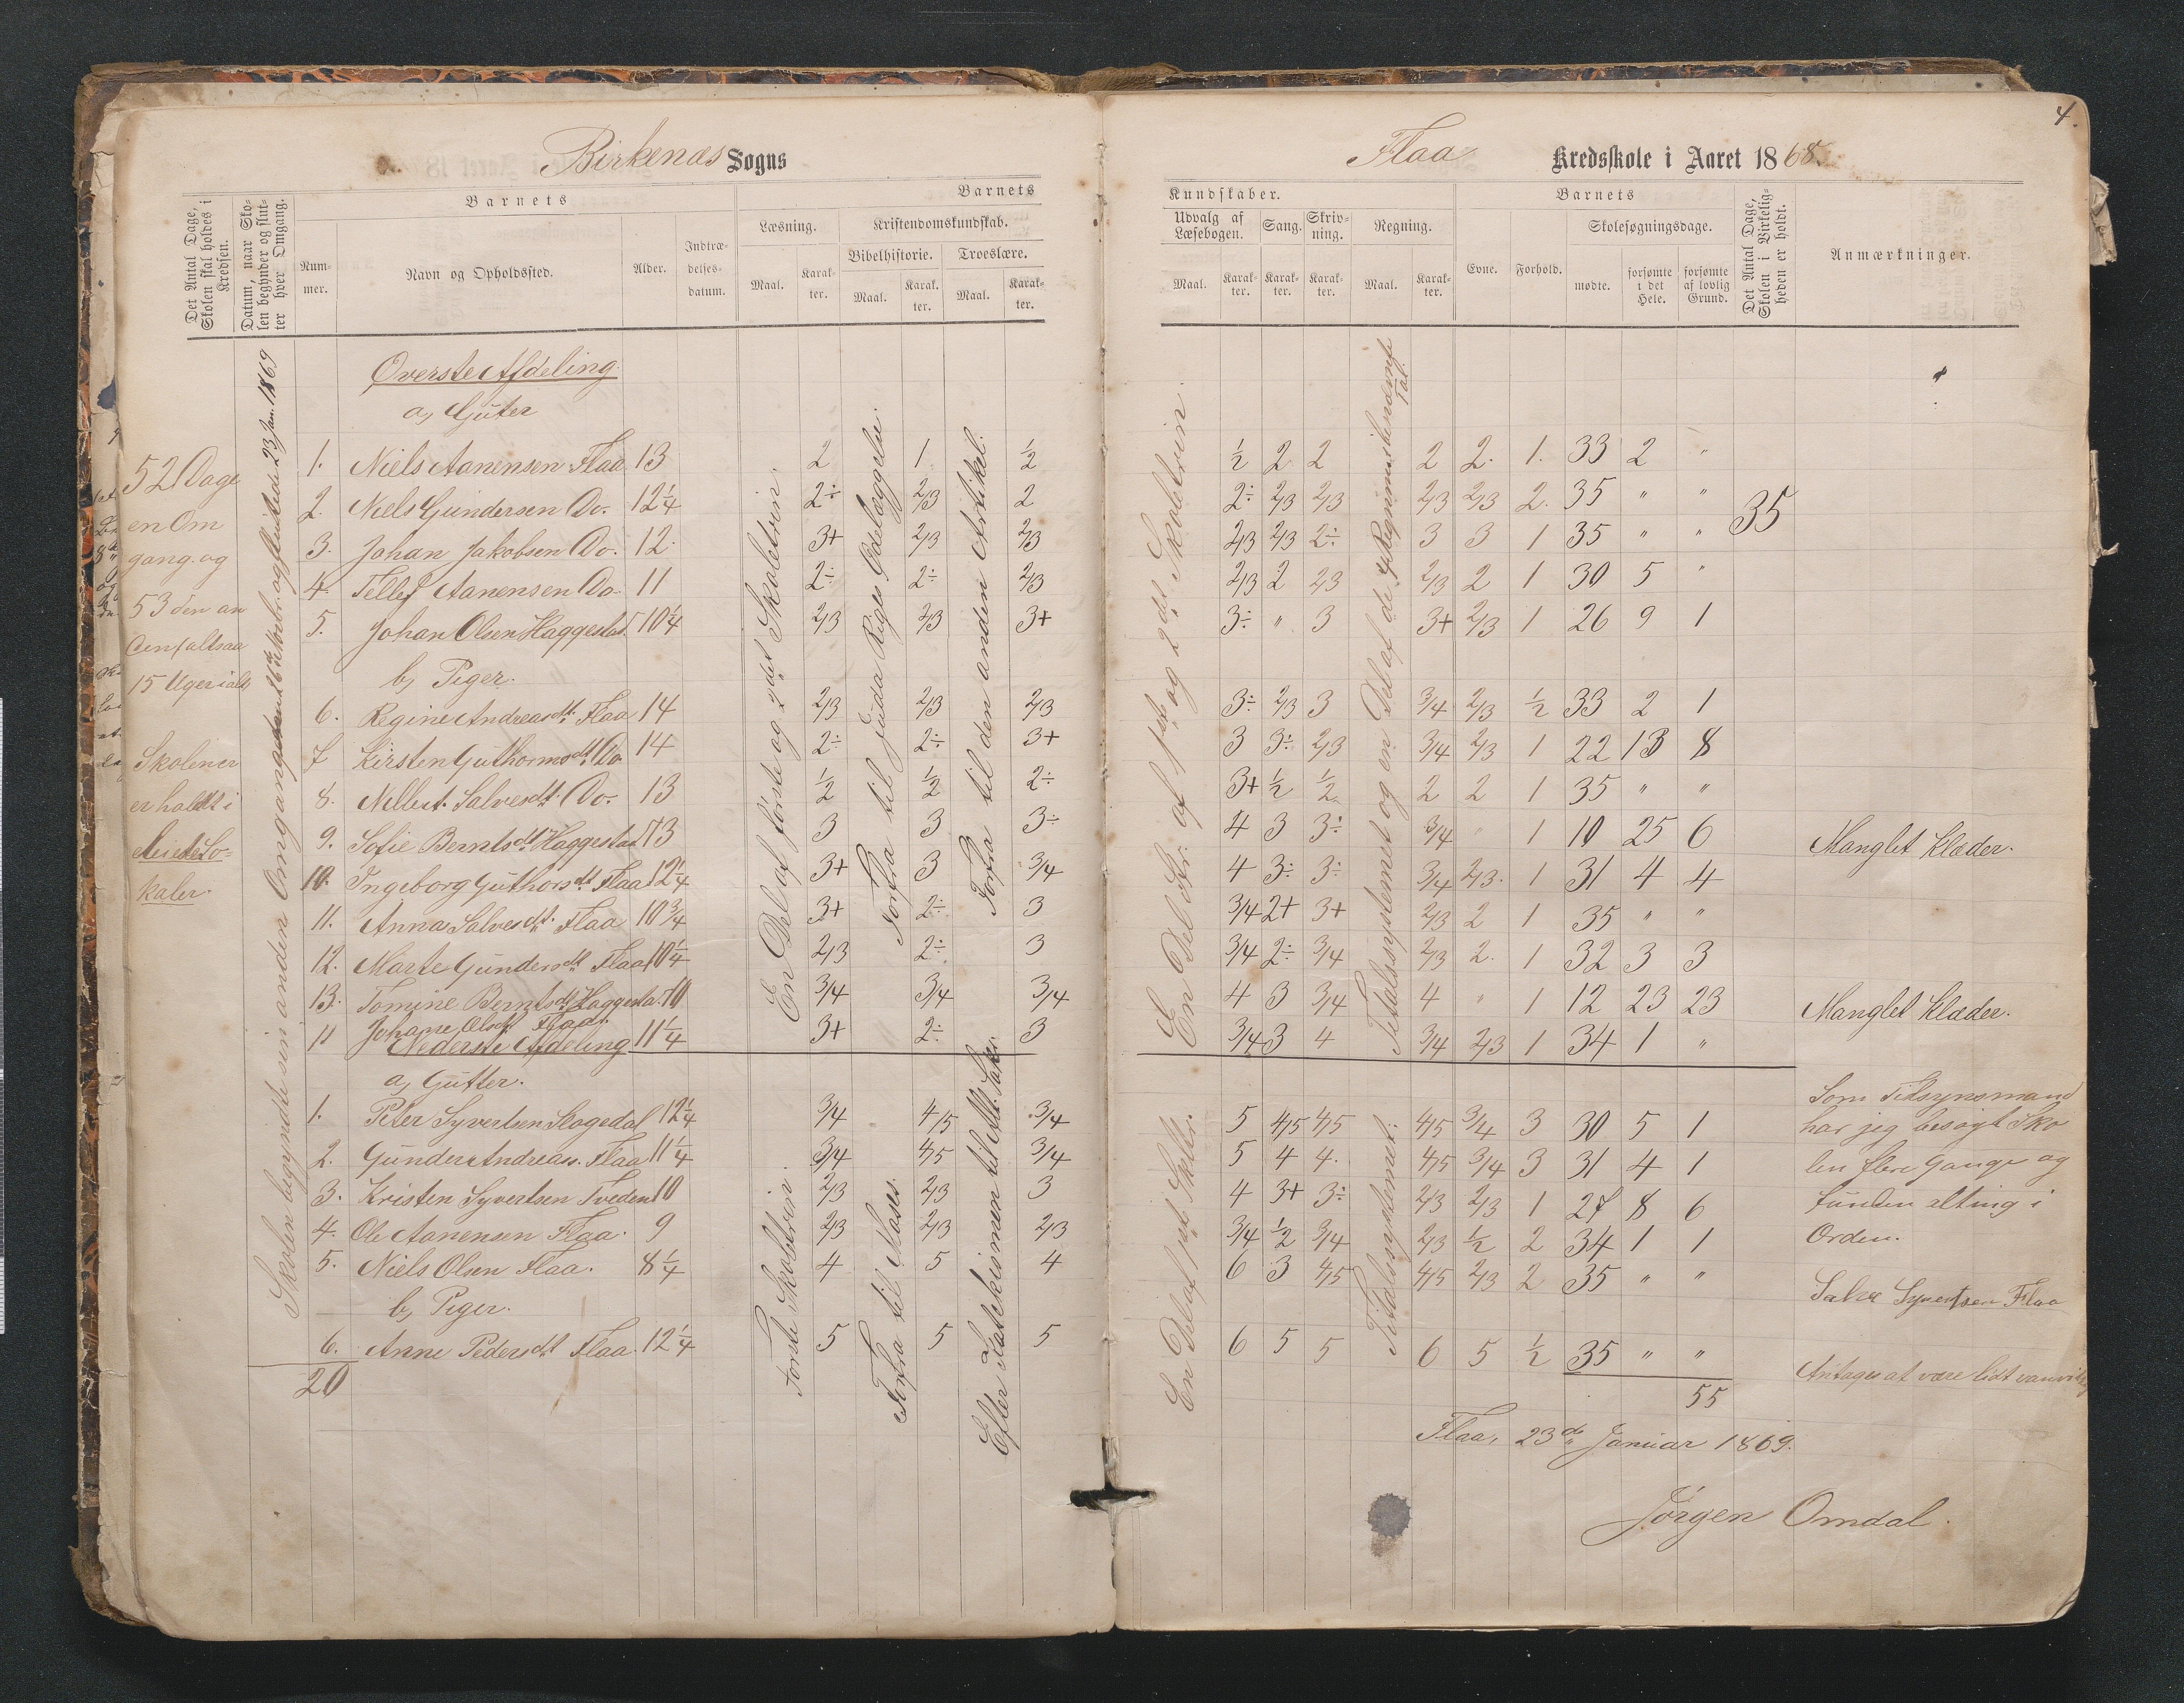 4.
Birkenæs Sogns
Flaa Kredsskole i Aaret 1868.
Det Antal Dage, Skolen skal holdes i Kredsen.
Datum, naar Skolen begynder og slutter hver Omgang.
Barnets
Nummer.
Navn og Opholdssted.
Alder.
Indtrædelsesdatum.
Barnets
Læsning.
Kristendomskundskab.
Bibelhistorie.
Troeslære.
Maal.
Karakter.
Maal.
Karakter.
Maal.
Karakter.
Kundskaber.
Udvalg af Læsebogen.
Sang.
Skrivning.
Regning.
Maal.
Karakter.
Karakter.
Karakter.
Maal.
Karakter.
Barnets
Evne.
Forhold.
Skolesøgningsdage.
mødte.
forsømte i det Hele.
forsømte af lovlig Grund.
Det Antal Dage, Skolen i Virkeligheden er holdt.
Anmærkninger.
52 Dage
en Om
gang. og
53 den an
den altsaa
15 Uger ialt
Skolen er
er holdt i
leiede Lo=
kaler.
Skolen begyndte sin anden Omgang den 26de Novbr. og sluttede 23 Jan. 1869
Øverste Afdeling.
a, Gutter
En Del af første og 2det Skoletrin.
Forfra til Juda Riges Ødelæggelse.
Forfra til den anden Artikel.
En Del Skr. af 1ste og 2det Skoletrin.
Titalssystemet og en Del af de 4 Regnem. i benævnte Tal.
1. Niels Aanensen Flaa 13 2 1 1/2 1/2 2 2 2 2. 1. 33 2 "
2. Niels Gundersen Do. 12 1/4 2÷ 2/3 2 2÷ 2/3 2/3 2/3 2/3 2. 35 " " 35
3. Johan Jakobsen Do. 12. 3+ 2/3 2/3 2/3 2/3 2÷ 3 3 1 35 " "
4. Tellef Aanensen Do. 11 2÷ 2÷ 2/3 2/3 2 2/3 2/3 2 1 30 5 "
5. Johan Olsen Haggestad. 10 1/4 2/3 2/3 3+ 3÷ " 3 3+ 2/3 1 26 9 1
b, Piger.
6. Regine Andreasdt. Flaa 14 2/3 2/3 2/3 3÷ 2/3 3 3/4 2/3 1/2 33 2 1
7 Kirsten Guthormsdt. Do 14 2÷ 2÷ 3+ 3 3÷ 2/3 3/4 2/3 1 22 13 8
8. Nellert. Salvesdt. Do. 13 1/2 1/2 2÷ 3+ 1/2 1/2 2 2 1 35 " "
9. Sofie Berntsdt. Haggestad 13 3 3 3÷ 4 3 3÷ 3/4 " 1 10 25 6 Manglet Klæder.
10. Ingeborg Guthorsdt. Flaa 12 1/4 3+ 3 3/4 4 3÷ 3÷ 3/4 2/3. 1 31 4 4
11. Anna Salvesdt. Flaa 10 3/4 3+ 2÷ 3 3/4 2+ 3+ 2/3 2 1 35 " "
12. Marte Gundersdt. Flaa 10 1/4 2/3 2÷ 3 3/4 2÷ 3/4 2/3 2. 1 32 3 3
13. Tomine Berntsdt. Haggesta. 10 3/4 3/4 3/4 4 3 3/4 4 " 1 12 23 23 Manglet Klæder.
11 Johanne Olsdt. Flaa. 11 1/4 3+ 2÷ 3 3/4 3 4 3/4 2/3 1 34 1 "
Nederste Afdeling
a, Gutter.
Første Skoletrin.
Forfra til Moses.
Efter Katekismen til Alt. Sakr.
En Del af 1ste Skoletr.
Titalssystemet.
1. Peter Syvertsen Skogedal 12 1/4 3/4 4/5 3/4 5 4/5 4/5 4/5 3/4 3 30 5 1
2. Gunder Andreass. Flaa 11 1/4 3/4 4/5 3/4 5 4 4. 4/5 3/4 3 31 4 1
3. Kristen Syvertsen Tveden 10 2/3 2/3 3 4 3+ 3÷ 2/3 2/3 1 27 8 6
4. Ole Aanensen Flaa. 9 2/3 2/3 2/3 3/4 1/2 3/4 2/3 1/2 2 34 1 1
5. Niels Olsen Flaa. 8 1/4 4 5 4 6 3 4/5 4/5 2/3 2 35 " "
b, Piger.
6. Anne Pedersdt. Flaa. 12 1/4 5 5 5 6 5 5 6 5 1/2 35 " "
20
55
Som Tilsynsmand
har jeg besøgt Sko
len flere Gange og
funden alting i
Orden.
Salve Syvertsen Flaa
Antages at være lidt vanvittig
Flaa, 23de Januar 1869.
Jørgen Omdal.